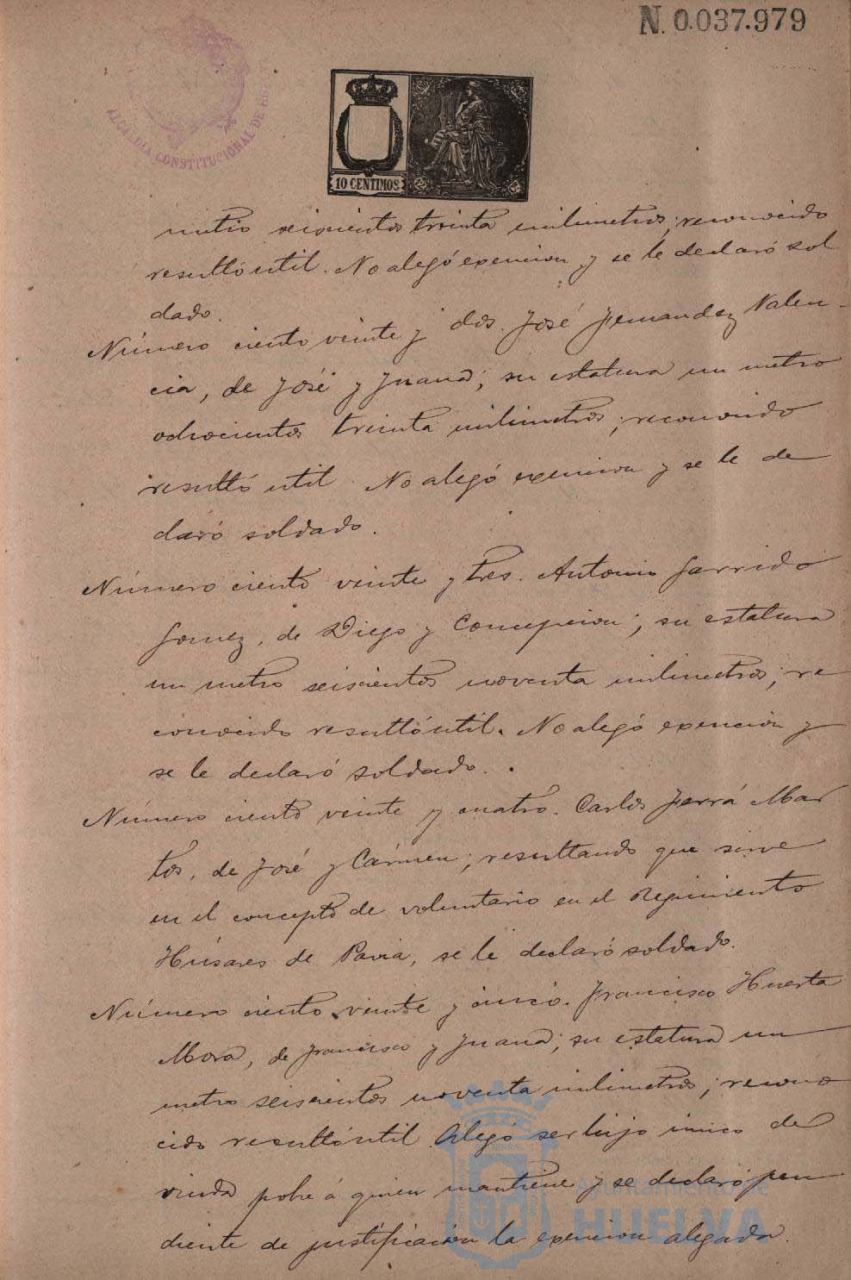 N. 0.037.979
ALCALDIA CONSTITUCIONAL DE
10 CENTIMOS
metro seiscientos treinta milimetros; reconocido
resultó util. No alegó exencion y se le declaró sol
dado.
Número ciento veinte y dos. José Fernandez Valen-
cia, de José y Juana; su estatura un metro
ochocientos treinta milimetros; reconocido
resultó util. No alegó exencion y se le de
claró soldado.
Número ciento veinte y tres. Antonio Garrido
Gomez, de Diego y Concepcion; su estatura
un metro seiscientos noventa milimetros; re
conocido resultó util. No alegó exencion y
se le declaró soldado.
Número ciento veinte y cuatro. Carlos Ferrá Mar
tos, de José y Cármen; resultando que sirve
en el concepto de voluntario en el Regimiento
Húsares de Pavia, se le declaró soldado.
Número ciento veinte y cinco. Francisco Huerta
Mora, de Francisco y Juana; su estatura un
metro seiscientos noventa milimetros; recono
cido resultó util. Alegó ser hijo único de
viuda pobre á quien mantiene y se declaró pen
diente de justificacion la exencion alegada.
Ayuntamiento de
HUELVA